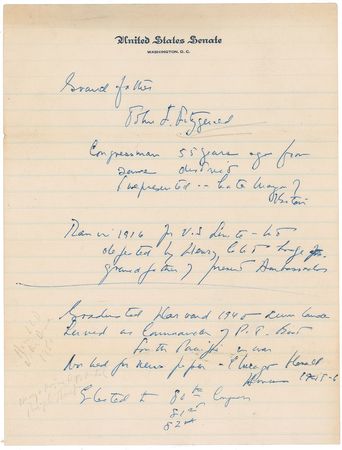 United States Senate
WASHINGTON, D. C.
Grand father
John F. Fitzgerald
Congressman 55 years ago from
same district
I represented -- Late Mayor of
Boston
Ran in 1916 for U.S. Senate - lost
defeated by Henry Cabot Lodge
grandfather of present Ambassador
Graduated Harvard 1940 Cum laude
Served as Commander of P.T. Boat
South Pacific in war
Worked for news paper - Chicago Herald
American 1945-6
Elected to 80th Congress
81st
82nd